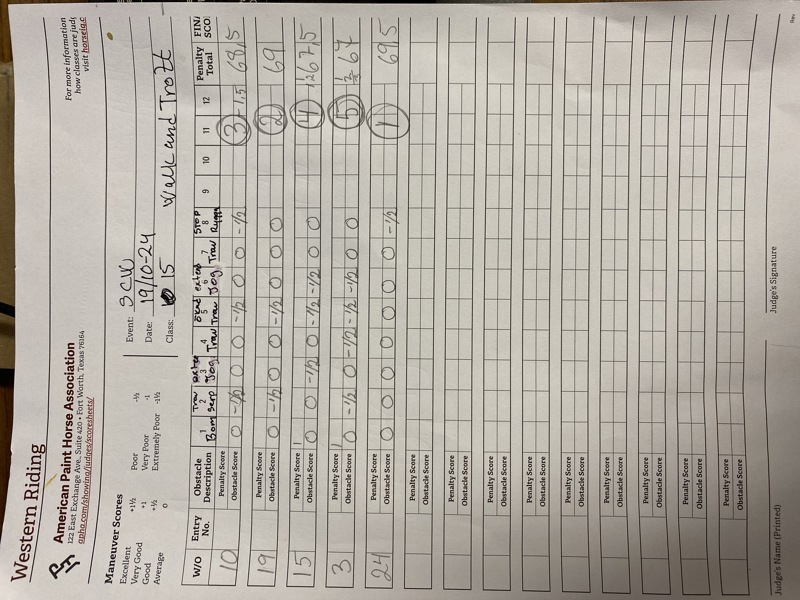 Western Riding
American Paint Horse Association
122 East Exchange Ave., Suite 420 • Fort Worth, Texas 76164
apha.com/showing/judges/scoresheets/
For more information
how classes are judg
visit horseia.c
Maneuver Scores
Excellent +1½ Poor -½
Very Good +1 Very Poor -1
Good +½ Extremely Poor -1½
Average 0
Event: SCW
Date: 19/10-24
Class: 15 Walk and Trott
W/O Entry No. Obstacle Description 1 2 3 4 5 6 7 8 9 10 11 12 Penalty Total FINA SCO
Bom Trav Serp Jog Trav Trav Jog Trav STOP Rygga
10 Penalty Score
Obstacle Score 0 -½ 0 0 -½ 0 0 -½ 3 -1,5 68,5
19 Penalty Score
Obstacle Score 0 -½ 0 0 -½ 0 0 0 2 69
15 Penalty Score 1
Obstacle Score 0 0 -½ 0 -½ -½ 0 0 4 67,5
3 Penalty Score 1
Obstacle Score 0 -½ 0 -½ -½ -½ 0 0 5 67
24 Penalty Score
Obstacle Score 0 0 0 0 0 0 0 -½ 1 69,5
Penalty Score
Obstacle Score
Penalty Score
Obstacle Score
Penalty Score
Obstacle Score
Penalty Score
Obstacle Score
Penalty Score
Obstacle Score
Penalty Score
Obstacle Score
Penalty Score
Obstacle Score
Penalty Score
Obstacle Score
Penalty Score
Obstacle Score
Judge's Name (Printed) Judge's Signature
Rev